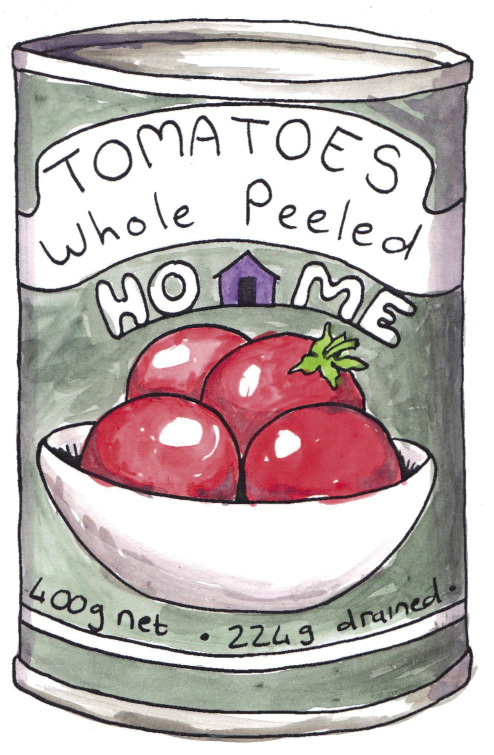 TOMATOES
Whole Peeled
HOME
400g net • 224g drained •